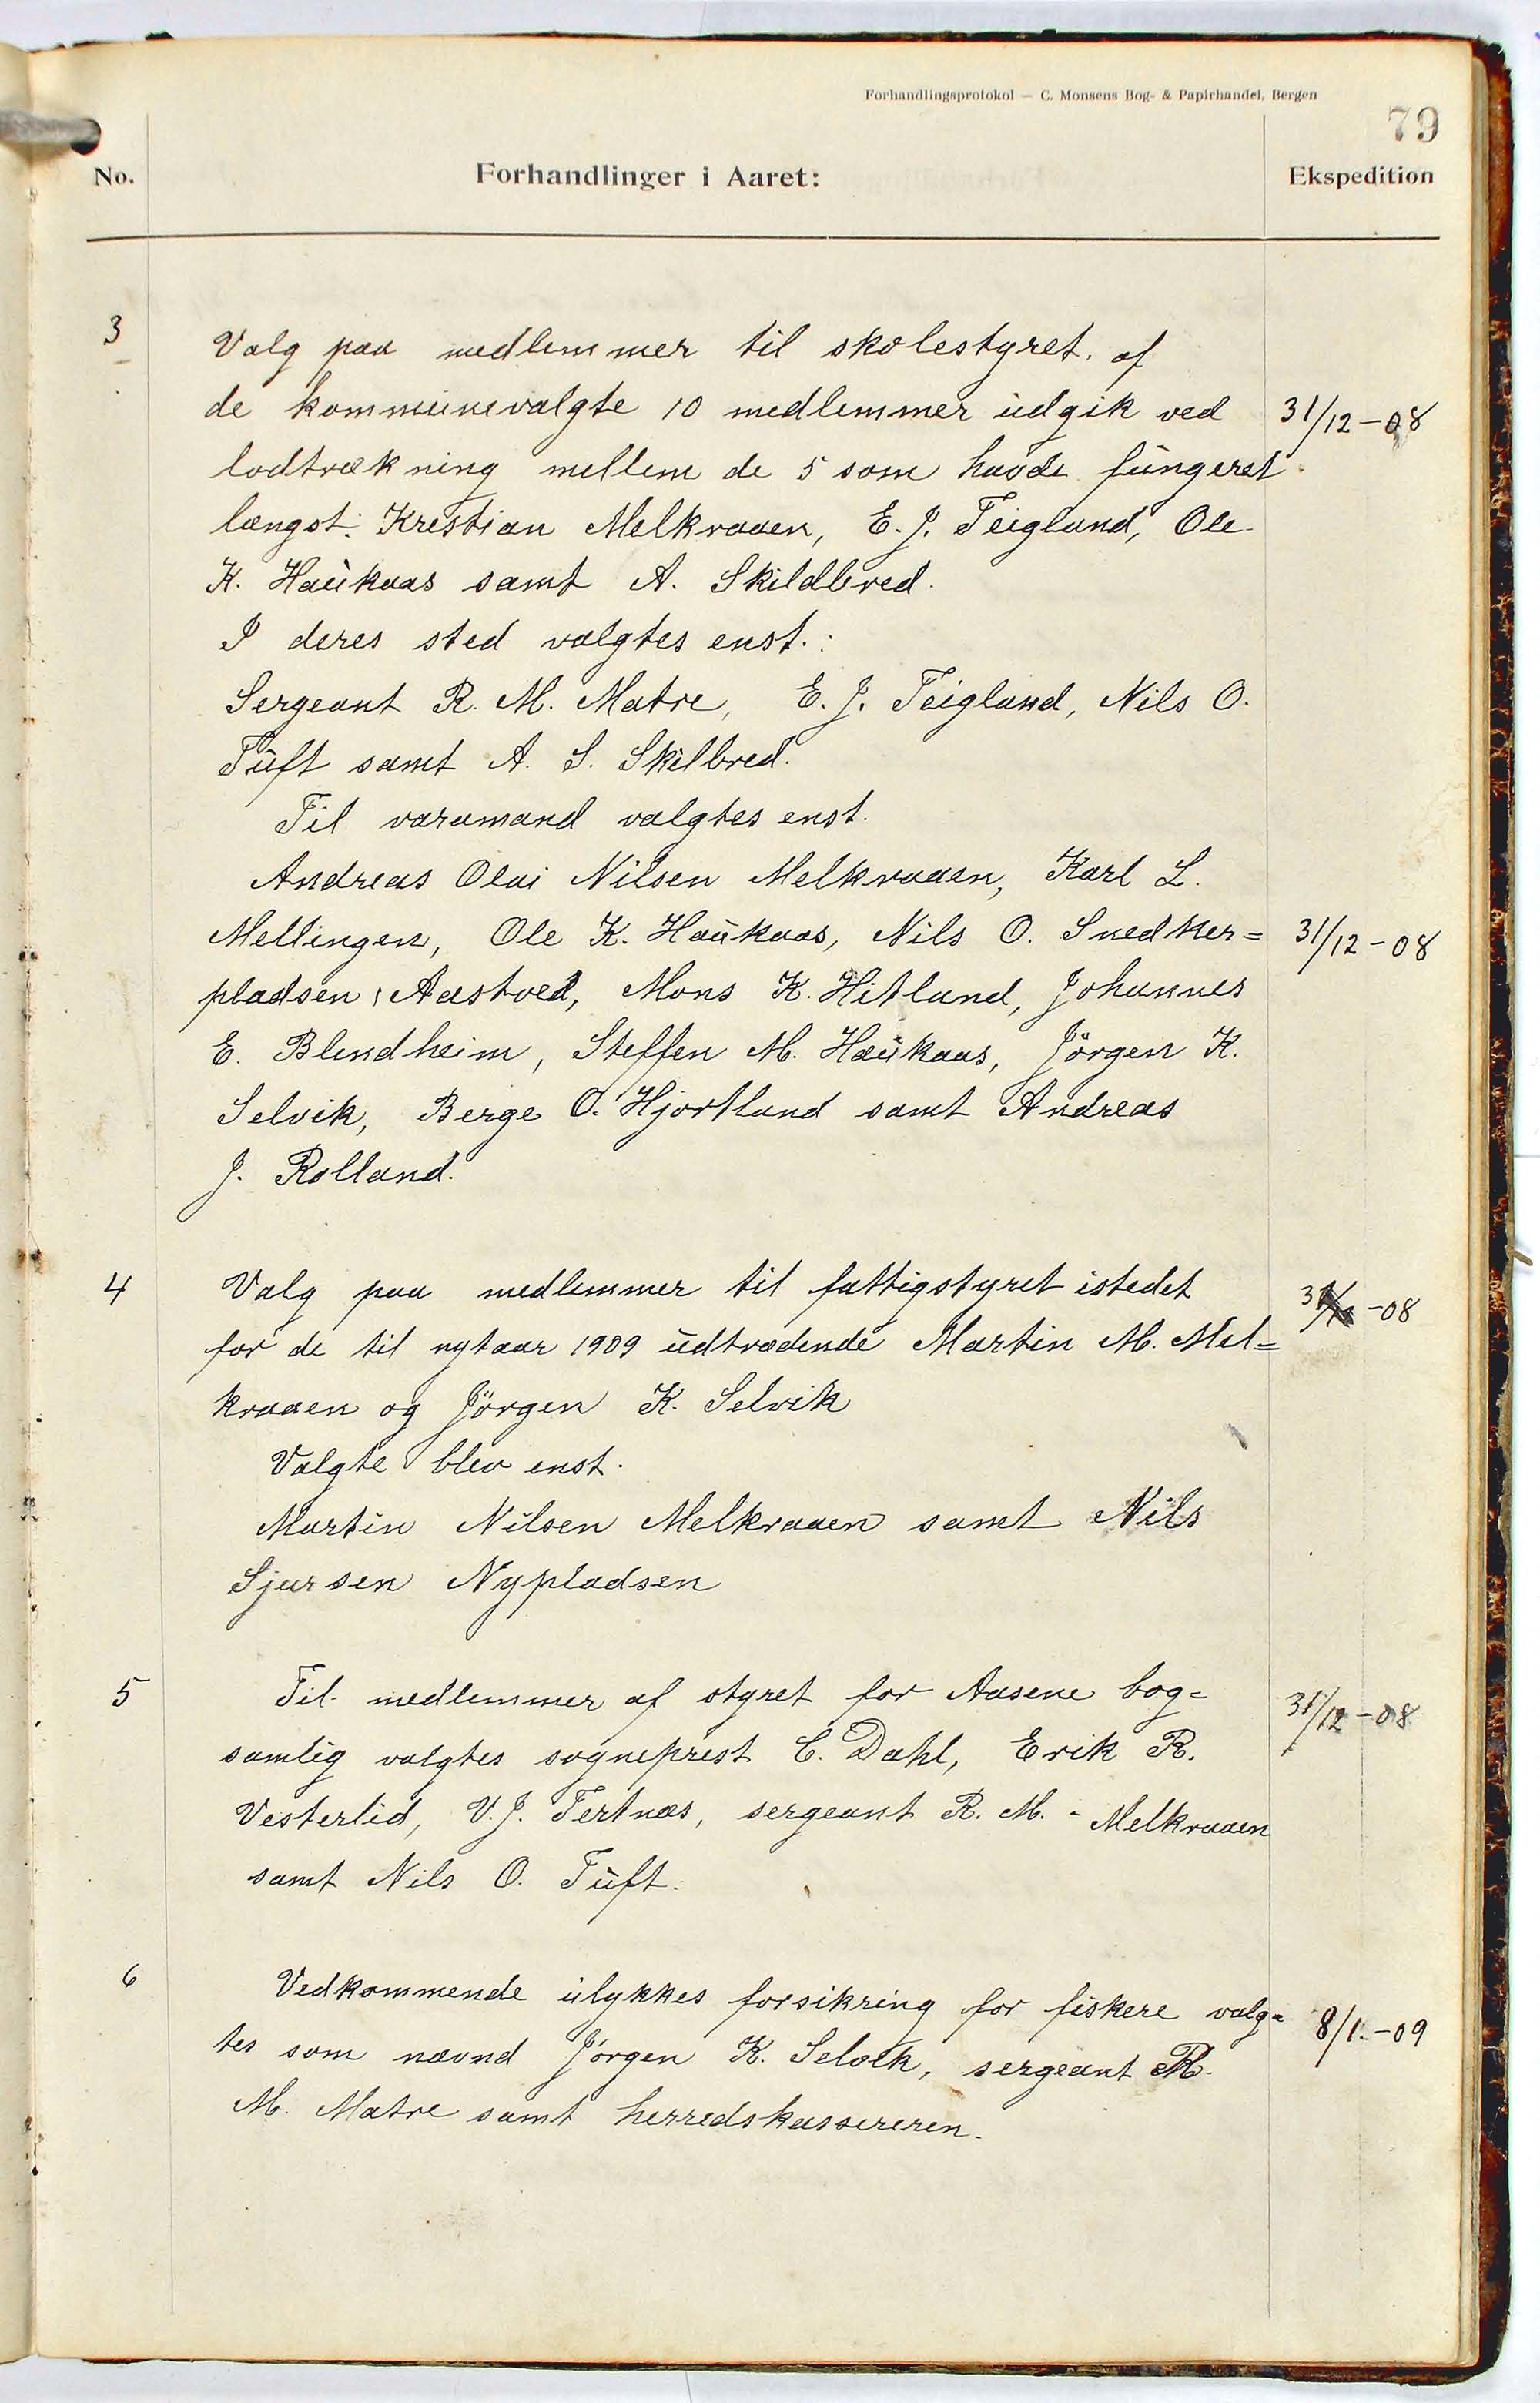 Forhandlingsprotokol — C. Monsens Bog- & Papirhandel, Bergen
79
No. Forhandlinger i Aaret: Ekspedition
3 Valg paa medlemmer til skolestyret, af
de kommunevalgte 10 medlemmer udgik ved 31/12-08
lodtrækning mellem de 5 som havde fungeret
længst: Kristian Melkraaen, E. J. Teigland, Ole
K. Haukaas samt A. Skildbred.
I deres sted valgtes enst.:
Sergeant R. M. Matre, E. J. Teigland, Nils O.
Tuft samt A. S. Skilbred.
Til varamand valgtes enst.
Andreas Olai Nilsen Melkraaen, Karl L.
Mellingen, Ole K. Haukaas, Nils O. Snedker= 31/12-08
pladsen, Aastved, Mons K. Hitland, Johannes
E. Blindheim, Steffen M. Haukaas, Jörgen K.
Selvik, Berge O. Hjortland samt Andreas
J. Rolland.
4 Valg paa medlemmer til fattigstyret istedet -08
for de til nytaar 1909 udtrædende Martin M. Mel=
kraaen og Jörgen K. Selvik
Valgte blev enst.
Martin Nilsen Melkraaen samt Nils
Sjursen Nypladsen
5 Til medlemmer af styret for Aasene bog= 31/12-08
samlig valgtes sogneprest C. Dahl, Erik R.
Vesterlid, V. J. Tertnæs, sergeant R. M. - Melkraaen
samt Nils O. Tuft.
6 Vedkommende ulykkes forsikring for fiskere valg= 8/1.-09
tes som nævnd Jörgen K. Selvik, sergeant R.
M. Matre samt herredskassereren.